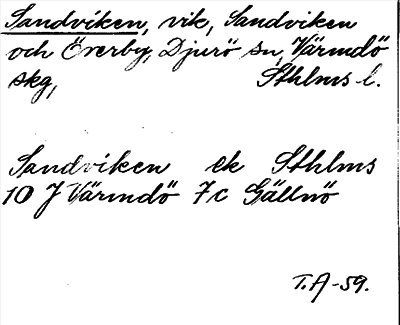 Sandviken, vik, Sandviken
och Överby, Djurö sn, Värmdö
skg, Sthlms l.
Sandviken ek Sthlms
10 J Värmdö 7c Gällnö
T.A-59.